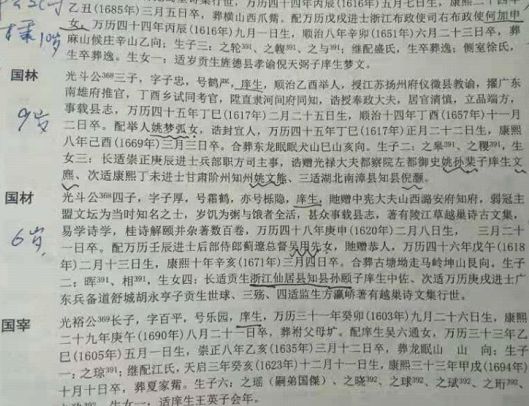 乙丑(1685年)三月五日卒，葬横山西爪觜。配万历戊戌进士浙江布政使司右布政使何加申
女。万历四十四年丙辰(1616年)九月一日生，顺治八年辛卯(1651年)六月二十三日卒，葬
麻山候庄辛山乙向；生子三：之轮³⁹¹、之輗³⁹¹、之与³⁹¹；继配盛氏，生卒葬逸；侧室徐氏，
生卒葬逸。生女一：适岁贡生旌德县孝谕倪天弼子庠生梦文。
国林
光斗公³⁶⁸三子，字子忠，号鹤严，庠生，顺治乙酉举人，授江苏扬州府仪徵县教谕，擢广东
南雄府推官，丁酉乡试同考官，陞直隶河间府同知，诰授奉政大夫，居官清慎，立品端方，
事载县志，万历四十五年丁巳(1617年)二月二十五日生，顺治十四年丁酉(1657年)十一月
二日卒。配举人姚梦弧女，诰封宜人，万历四十五年丁巳(1617年)正月二十二日生，康熙
八年己酉(1669年)三月三日卒。合葬东龙眠眠犬山巳山亥向。生子二：之杲³⁹¹、之稷³⁹¹。生
女三：长适崇正庚辰进士兵部职方司主事，诰赠光禄大夫都察院左都御史姚孙棐子庠生文
麃、次适康熙丁未进士甘肃阶州知州姚文熊、三适湖北南漳县知县倪灏。
国材
光斗公³⁶⁸四子，字子厚，号霜鹤，亦号栎隐，庠生，貤赠中宪大夫山西潞安府知府，弱冠主
盟文坛为当时知名之士，岁饥为粥与饿者全活，甚众事载县志，著有陵江草越巢诗古文集，
易学诗学，桂诗解颐并杂著数百卷，万历四十八年庚申(1620年)二月八日生，　三月二十
一日卒。配万历壬辰进士后部侍郎蓟遼总督吴用先女，貤赠恭人，万历四十六年戊午(1618
年)二月十三日生，康熙十年辛亥(1671年)三月四日卒。合葬古塘坳走马岭坤山艮向。生子
二：晖³⁹¹、相³⁹¹，生女四；长适贡生浙江仙居县知县孙颐子庠生中佐、次适万历庚戌进士广
东兵备道舒城胡永亨子贡生世球、三殇、四适监生方瀛峤著有越巢诗文集行世。
国宰
光裕公³⁶⁹长子，字百平，号乐园，庠生，万历三十一年癸卯(1603年)九月二十六日生，康熙
二十九年庚午(1690年)八月二十一日卒，葬祔父母圹。配庠生吴六通女，万历三十三年乙
巳(1605年)五月一日生，崇正八年乙亥(1635年)三月十二日卒，葬龙眠山　山　向；生子
一：之琼³⁹²；继配江氏，天启三年癸亥(1623年)十二月十一日生，康熙三十三年甲戌(1694年)
十月十日卒，葬夏家觜。生子六：之瑶（嗣弟国傑）、之晓³⁹²、之球³⁹²、之斌³⁹²、之珩³⁹²、
生女一：适庠生王英子会年。
9岁
6岁